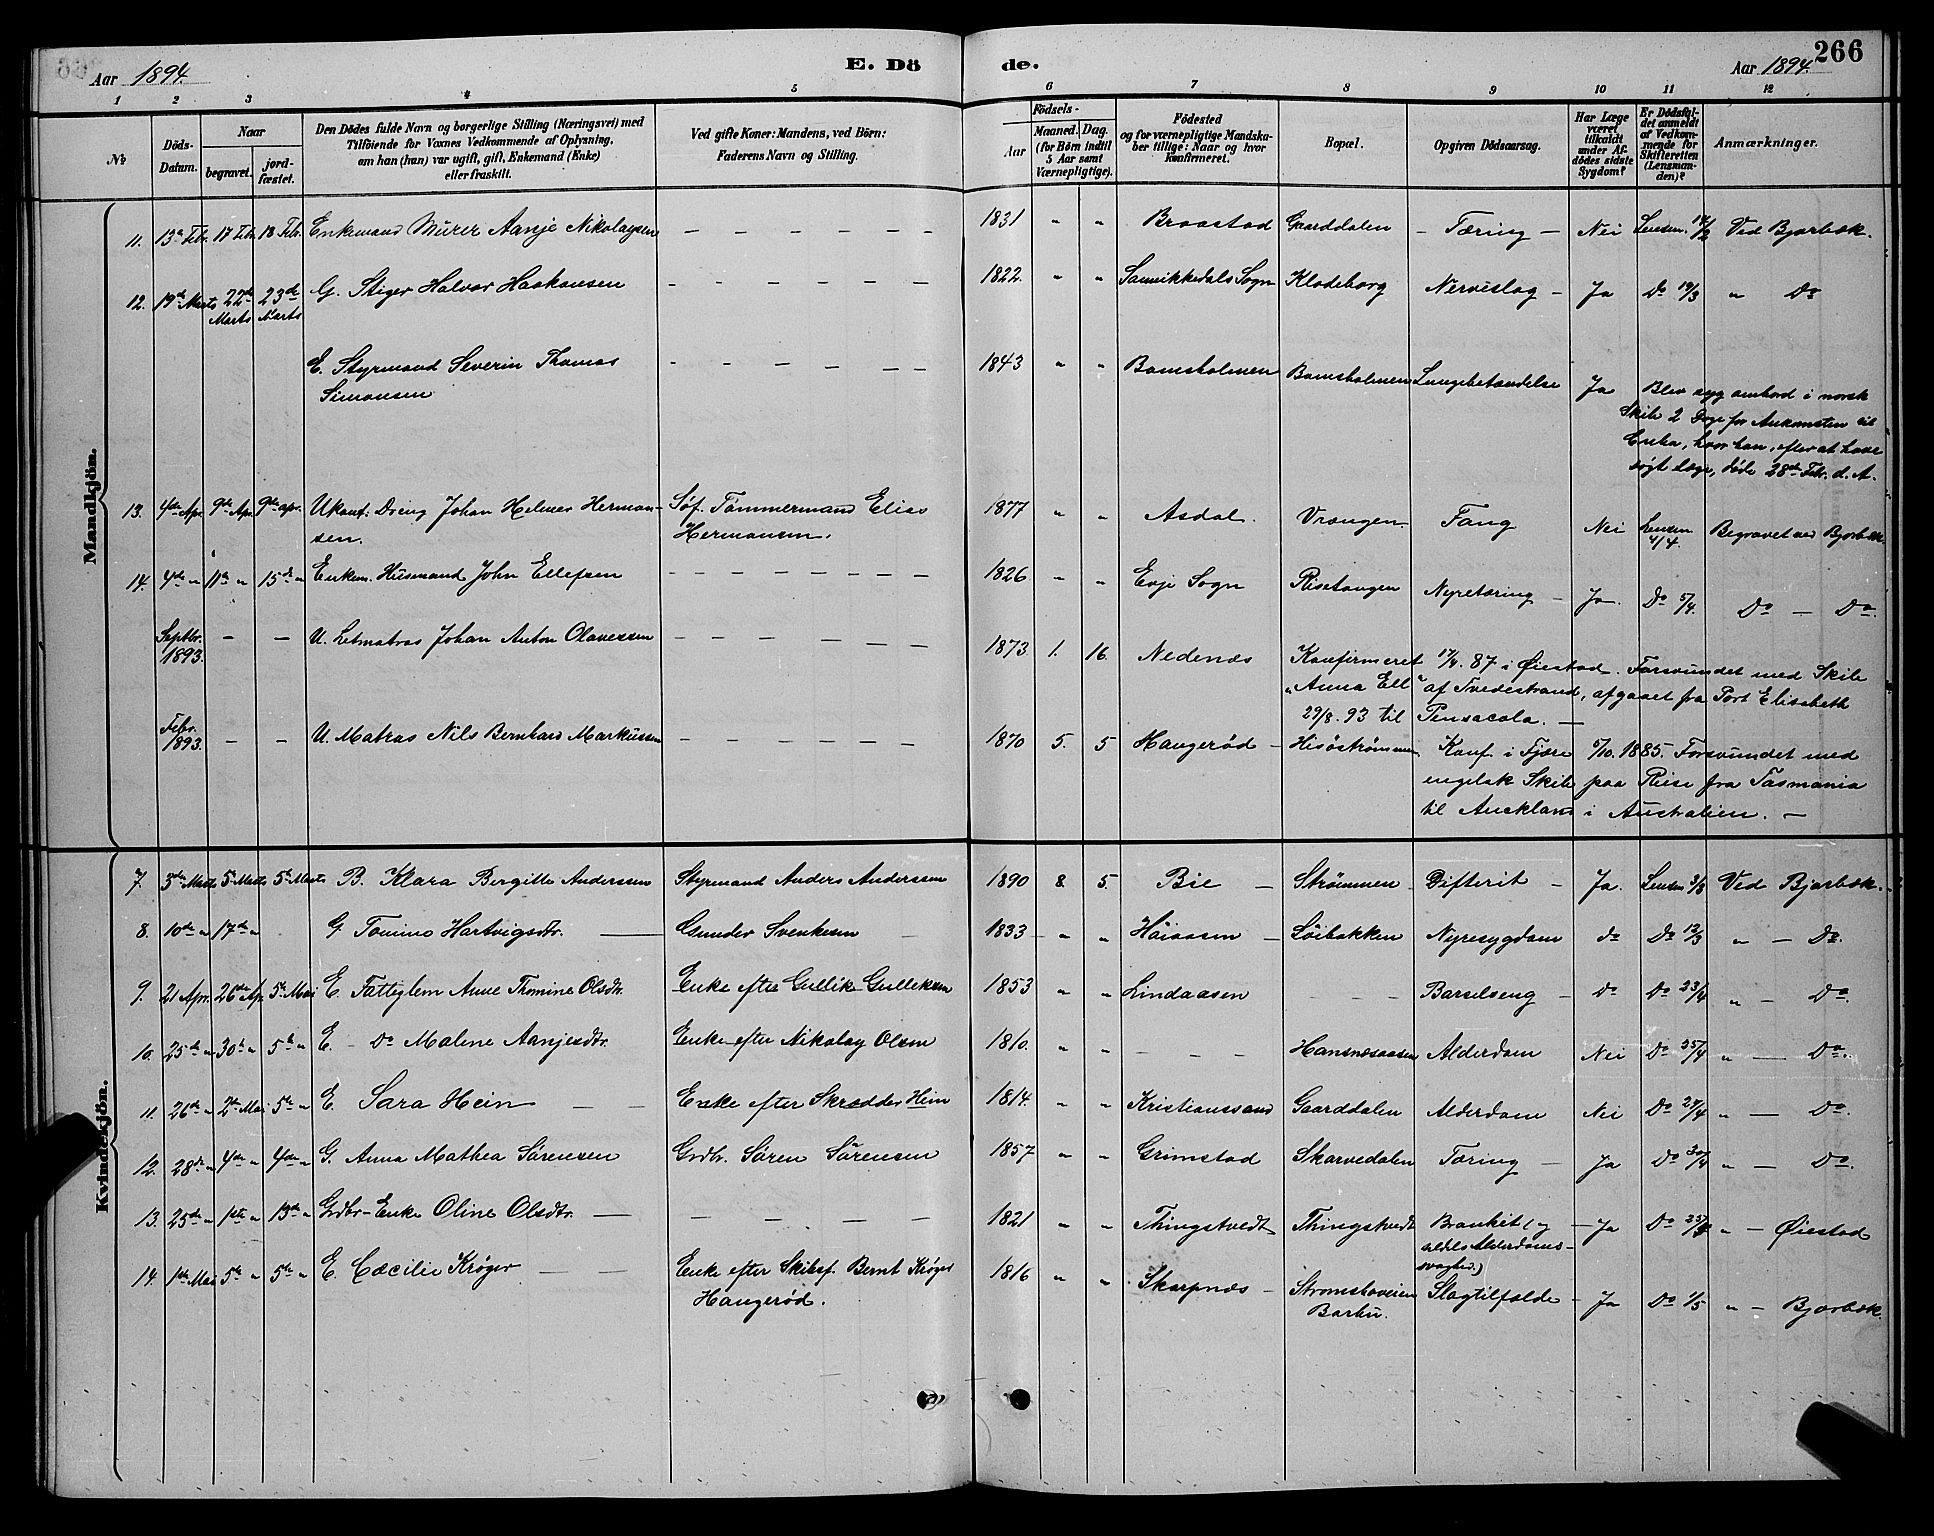 Aar 1894.
E. Dö
de.
Aar 1894.
266
1 2 3 4 5 6 7 8 9 10 11 12
No
Döds-Datum.
Naar
begravet.
jord-fæstet.
Den Dödes fulde Navn og borgerlige Stilling (Næringsvei) med
Tilföiende for Voxnes Vedkommende af Oplysning,
om han (hun) var ugift, gift, Enkemand (Enke)
eller fraskilt.
Ved gifte Koner: Mandens, ved Börn:
Faderens Navn og Stilling.
Födsels-
Aar
Maaned. Dag.
(for Börn indtil
5 Aar samt
Værnepligtige).
Födested
og for værnepligtige Mandska-
ber tillige: Naar og hvor
Konfirmeret.
Bopæl.
Opgiven Dödsaarsag.
Har Læge
været
tilkaldt
under Af-
dödes sidste
Sygdom?
Er Dödsfal-
det anmeldt
af Vedkom-
mende for
Skifteretten
(Lensman-
den)?
Anmærkninger.
Mandkjön.
11. 13de Febr. 17 Febr. 18 Febr. Enkemand Murer Aanje Nikolaysen — — — — — — — 1831 " " Braastad Gaarddalen — Tæring — Nei Lensm. 14/2 Ved Bjorbæk.
12. 19de Marts 22de Marts 23de Marts G. Stiger Halvor Haakonsen — — — — — — — 1822 " " Sannikkedals Sogn Klodeborg Nerveslag — Ja Do 19/3 " Do
E. Styrmand Severin Thomas
Simonsen — — — — — — 1843 " " Bomsholmen Bomsholmen Lungebetændelse Ja Blev syg ombord i norsk
Skib 2 Dage før Ankomsten til
Cuba, hvor han, efter at have
søgt Læge, døde 28de Febr. d. A.
13. 4de Apr. 9de Apr. 9de apr. Ukonf: Dreng Johan Helmer Herman-
sen. Søf. Tømmermand Elias
Hermansen. 1877 " " Asdal. Vrængen Tang Nei Lensm 4/4. Begravet ved Bjorbæk
14. 4de " 11te " 15de " Enkem. Husmand John Ellefsen — — — — — — — — 1826 " " Evje Sogn Risetangen Nyretæring — Ja. Do 5/4. Do — Do
Septbr. 1893. — — U. Letmatros Johan Anton Olavessen — — — — — — 1873 1. 16. Nedenæs Konfirmeret 17/4. 87 i Øiestad. Forsvundet med Skib
"Anna Ell" af Tvedestrand, afgaaet fra Port Elisabeth
29/8. 93 til Pensacola. —
Febr. 1893. — — U. Matros Nils Bernhard Markussen — — — — — — — 1870 5. 5 Haugerød — Hisöströmmen Konf. i Fjære 5/10. 1885. Forsvundet med
engelsk Skib paa Reise fra Tasmania
til Auckland i Australien. —
Kvindekjön.
7. 3de Marts 5te Marts 5te Marts B. Klara Bergitte Anderssen Styrmand Anders Anderssen 1890 8. 5. Bie — Strömmen Difterit — Ja. Lensm 3/3 Ved Bjorbæk.
8. 10de " 17de " G. Tomine Hartvigsdtr. — Gunder Svenksen — 1833 " " Håiaasen — Löibakken Nyresygdom do Do 12/3 " — Do.
9. 21 Apr. 26de Ap. 5te Mai E. Fattiglem Anne Thomine Olsdtr. Enke efter Gullik Gulliksen 1853 " " Lindaasen — — — Barselseng — Do Do 23/4 " — Do.
10. 25de " 30te " 5te " E. — Do Malene Aanjesdtr. Enke efter Nikolay Olsen 1810. " " — — — Hansnesaasen Alderdom Nei Do 25/4 " — Do.
11. 26de " 2de Mai 5te " E. Sara Hein — — Enke efter Skrædder Hein 1814. " " Kristianssand Gaarddalen Alderdom Nei Do 27/4 " — Do.
12. 28de " 4de " 4de " G. Anna Mathea Sørensen Grdbr. Søren Sørensen 1857 " " Grimstad Skarvedalen Tæring — Ja Do 30/4 " — Do.
13. 25de " 1ste " 13de " Grdbr-Enke Oline Olsdtr. — — — — — 1821 " " Thingstvedt Thingstvedt Bronkit (og
ældes Alderdoms-
svaghed.) — Ja Do 25/4 " — Øiestad
14. 1ste Mai 5te " 5te " E. Cæcilie Krøger — — Enke efter Skibsf. Bernt Krøger
Haugerød. 1816 " " Skarpnæs — Stromsboveien
Barbu. Slagtilfælde — Ja Do 1/5 " — Bjorbæk.